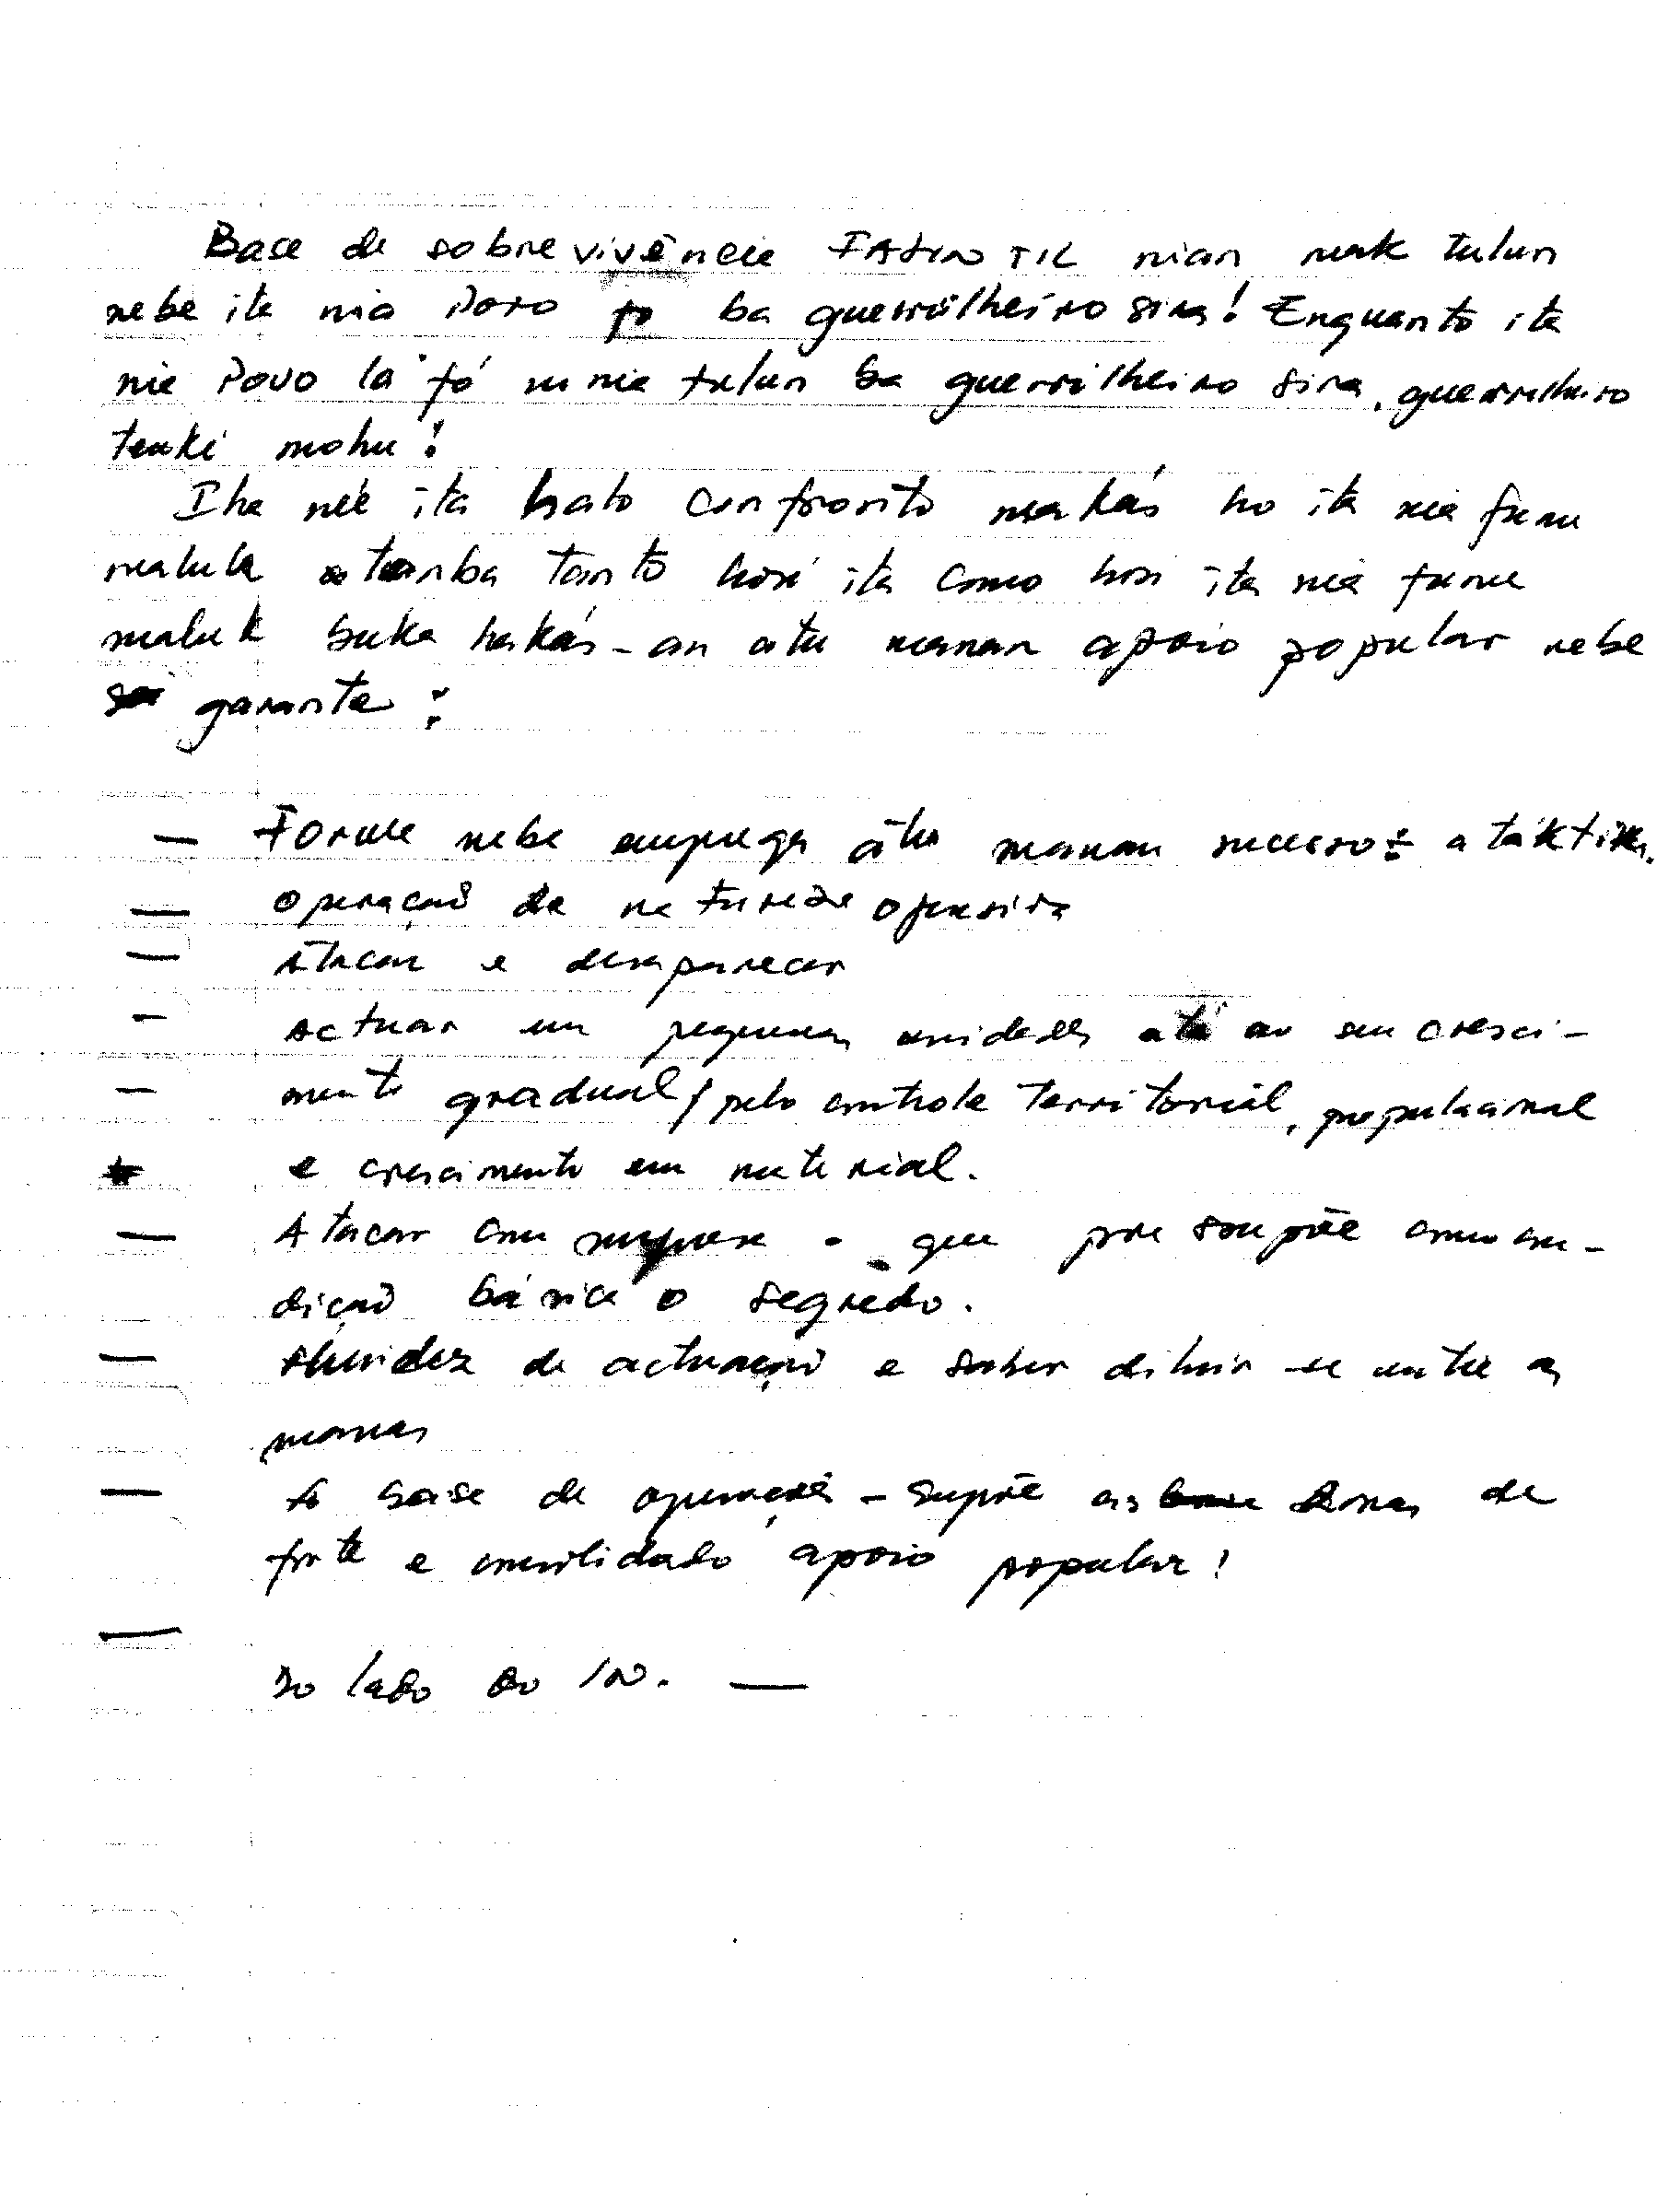 Base de sobrevivência FALINTIL nian mak tulun
nebe ita nia Povo fó ba guerrilheiro sira! Enquanto ita
nia Povo la fó ninia tulun ba guerrilheiro sira, guerrilheiro
tenki mohu!
Iha né'e ita hato confronto makás ho ita nia funu
maluk tanba tanto hosi ita como hosi ita nia funu
maluk buka hakás-an atu manan apoio popular nebe
garante:
— Forma nebe emprega atu manan sucesso: a táktika.
— Operação de natureza ofensiva
— Atacar e desaparecer
- Actuar em pequenas unidades até ao seu cresci-
- mento gradual, pelo controle territorial, populacional
e crescimento em material.
— Atacar com surpresa - que pressupõe como con-
dição básica o segrêdo.
— fluidez de actuação e saber diluir-se entre as
massas
— base de operações - supõe as zonas de
forte e consolidado apoio popular!
—
Do lado do IN. —